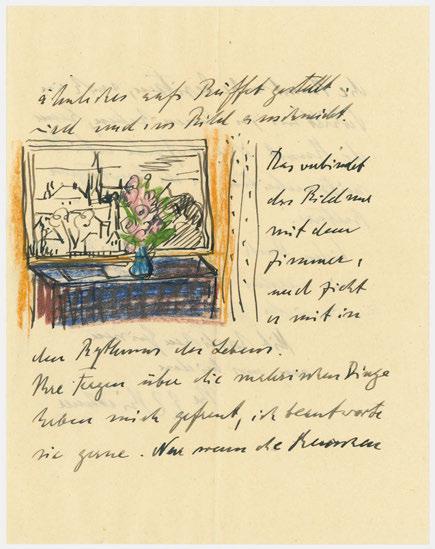 ähnliches aufs Büffet gestellt
wird und ins Bild
Das verbindet
das Bild nur
mit dem
Zimmer,
und zieht
es mit in
den Rythmus des Lebens.
Ihre Fragen über die malerischen Dinge
haben mich gefreut, ich beantworte
sie gerne. Nur wenn die Menschen